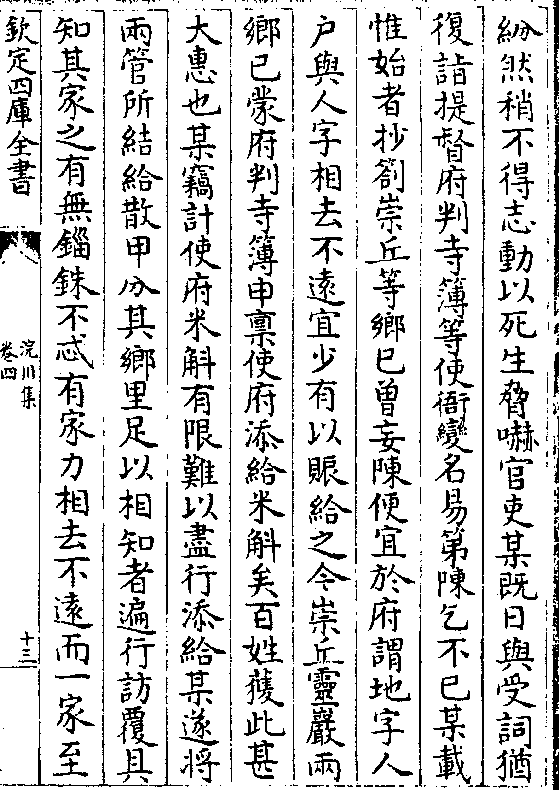 紛然稍不得志動以死生脅嚇官吏某既日與受詞猶
復詣提督府判寺簿等使衙變名易第陳乞不已某載
惟始者抄劄崇丘等鄉已曾妄陳便宜於府謂地字人
户與人字相去不遠宜少有以賑給之今崇丘靈巖兩
鄉已蒙府判寺簿申禀使府添給米斛矣百姓獲此甚
大惠也某竊計使府米斛有限難以盡行添給某遂將
兩管所結給散甲分其鄉里足以相知者遍行訪覆具
知其家之有無錙銖不忒有家力相去不遠而一家至
欽定四庫全書
浣川集
卷四
十三